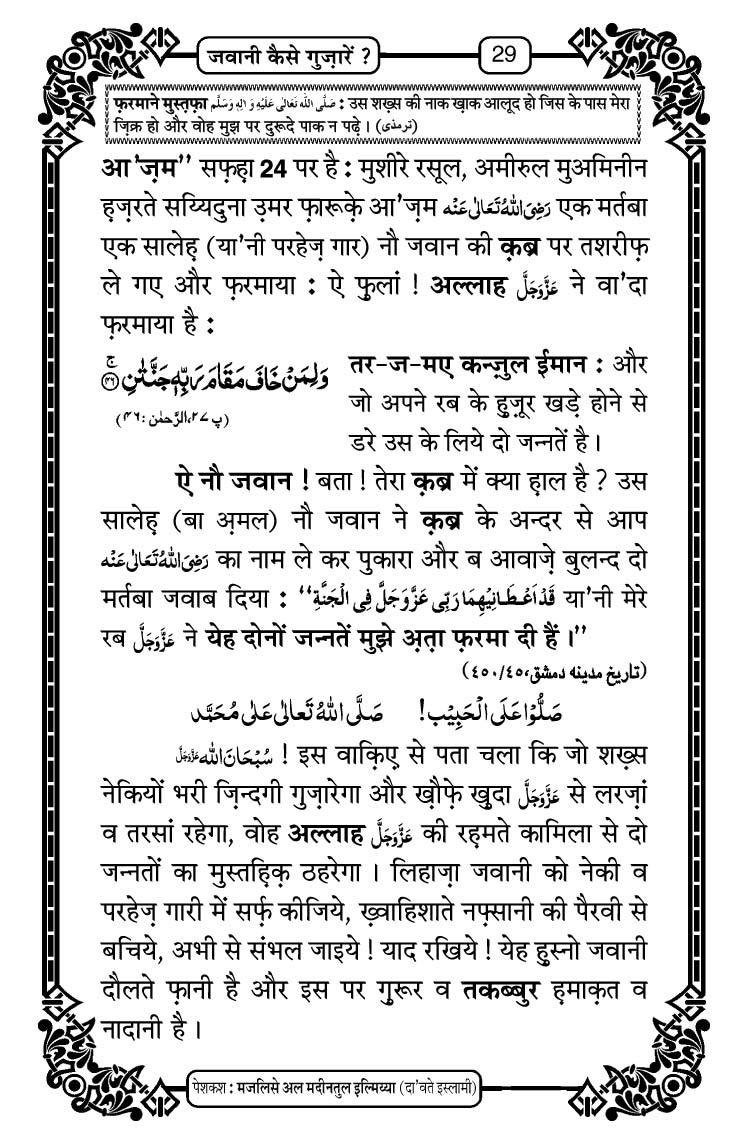 जवानी कैसे गुज़ारें ?
29
फ़रमाने मुस्त़फ़ा صَلَّی اللہ تَعَالٰی عَلَیْہِ وَ اٰلِہٖ وَسَلَّم : उस शख़्स की नाक ख़ाक आलूद हो जिस के पास मेरा
ज़िक्र हो और वोह मुझ पर दुरूदे पाक न पढ़े । (ترمذی)
आ'ज़म" सफ़ह़ा 24 पर है : मुशीरे रसूल, अमीरुल मुअमिनीन
ह़ज़रते सय्यिदुना उ़मर फ़ारूक़े आ'ज़म رَضِیَ اللہُ تَعَالٰی عَنْہ एक मर्तबा
एक सालेह़ (या'नी परहेज़ गार) नौ जवान की क़ब्र पर तशरीफ़
ले गए और फ़रमाया : ऐ फुलां ! अल्लाह عَزَّوَجَلَّ ने वा'दा
फ़रमाया है :
وَلِمَنْ خَافَ مَقَامَ رَبِّهٖ جَنَّتٰنِ ۚ﴿۴۶﴾
(پ ۲۷،الرَّحمٰن :۴۶)
तर-ज-मए कन्ज़ुल ईमान : और
जो अपने रब के ह़ुज़ूर खड़े होने से
डरे उस के लिये दो जन्नतें है ।
ऐ नौ जवान ! बता ! तेरा क़ब्र में क्या ह़ाल है ? उस
सालेह़ (बा अ़मल) नौ जवान ने क़ब्र के अन्दर से आप
رَضِیَ اللہُ تَعَالٰی عَنْہ का नाम ले कर पुकारा और ब आवाज़े बुलन्द दो
मर्तबा जवाब दिया : "قَدْ اَعْطَانِیْهِمَا رَبِّی عَزَّوَجَلَّ فِی الْجَنَّةِ या'नी मेरे
रब عَزَّوَجَلَّ ने येह दोनों जन्नतें मुझे अ़त़ा फ़रमा दी हैं ।"
(تاریخ مدینہ دمشق،۴۵/۴۵۰)
صَلُّوْا عَلَی الْحَبِیْب! صَلَّی اللہُ تَعَالٰی عَلٰی مُحَمَّد
سُبْحَانَ اللہ عَزَّوَجَلَّ ! इस वाक़िए से पता चला कि जो शख़्स
नेकियों भरी ज़िन्दगी गुज़ारेगा और ख़ौफ़े ख़ुदा عَزَّوَجَلَّ से लरज़ां
व तरसां रहेगा, वोह अल्लाह عَزَّوَجَلَّ की रह़मते कामिला से दो
जन्नतों का मुस्तह़िक़ ठहरेगा । लिहाज़ा जवानी को नेकी व
परहेज़ गारी में सर्फ़ कीजिये, ख़्वाहिशाते नफ़्सानी की पैरवी से
बचिये, अभी से संभल जाइये ! याद रखिये ! येह ह़ुस्नो जवानी
दौलते फ़ानी है और इस पर ग़ुरूर व तकब्बुर ह़माक़त व
नादानी है ।
पेशकश : मजलिसे अल मदीनतुल इल्मिय्या (दा'वते इस्लामी)